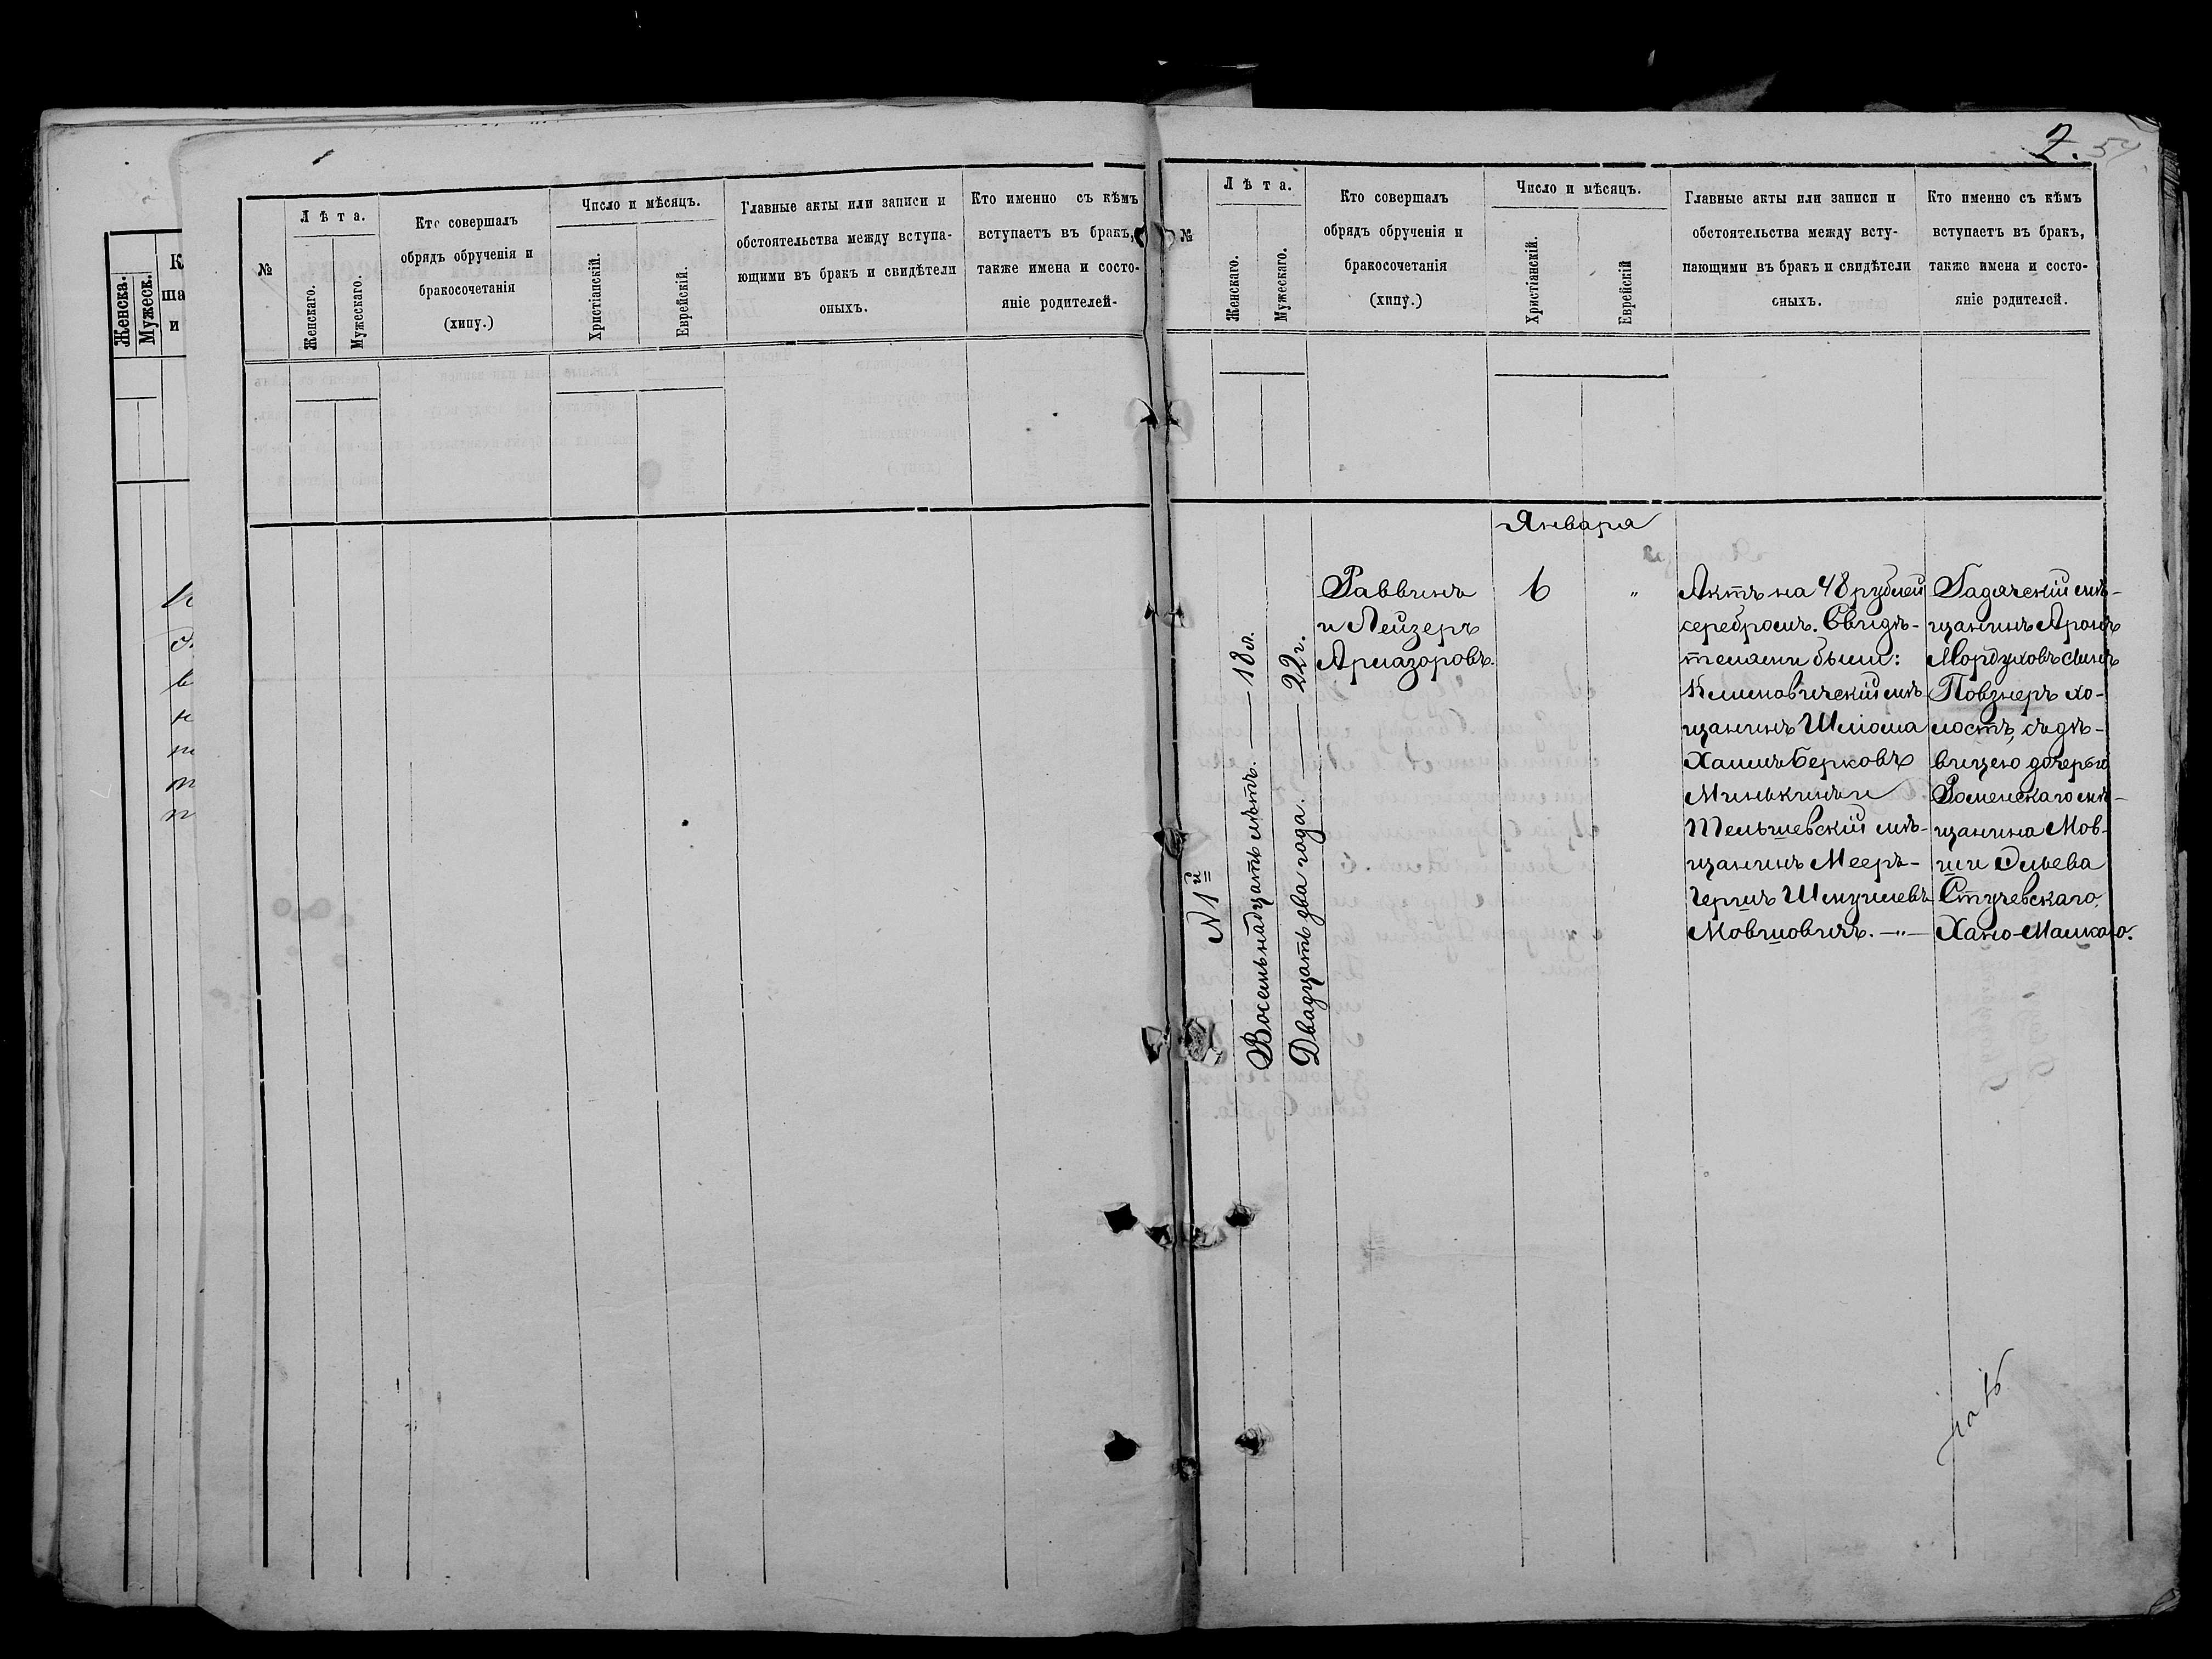 Женска.
Мужеск.
К
ша
и
№
Лѣта.
Женскаго.
Мужескаго.
Кто совершалъ
обрядъ обрученія и
бракосочетанія
(хипу.)
Число и мѣсяцъ.
Христіанскій.
Еврейскій.
Главные акты или записи и
обстоятельства между вступа-
ющими въ бракъ и свидѣтели
оныхъ.
Кто именно съ кѣмъ
вступаетъ въ бракъ,
также имена и состо-
яніе родителей-
2.
54
№
Лѣта.
Женскаго.
Мужескаго.
Кто совершалъ
обрядъ обрученія и
бракосочетанія
(хипу.)
Число и мѣсяцъ.
Христіанскій.
Еврейскій
Главные акты или записи и
обстоятельства между всту-
пающими въ бракъ и свидѣтели
оныхъ.
Кто именно съ кѣмъ
вступаетъ въ бракъ,
также имена и состо-
яніе родителей.
№ 1й
Восемьнадцать лѣтъ. — 18 л.
Двадцать два года. — 22 г.
Раввинъ
и Лейзеръ
Арлазоровъ.
Января
6
"
Актъ на 48 рублей
серебромъ. Свидѣ-
телями были:
Климовическій мѣ-
щанинъ Шліома
Хаимъ Берковъ
Минькинъ и
Тельшевскій мѣ-
щанинъ Мееръ-
Гершъ Шмуилевъ
Мовшовичъ. —"—
Гадячскій мѣ-
щанинъ Аронъ
Мордуховъ сынъ
Повзнеръ хо-
лостъ, съ дѣ-
вицею дочерью
Роменскаго мѣ-
щанина Мов-
ши Эльева
Стучевскаго,
Ханою-Малкою.